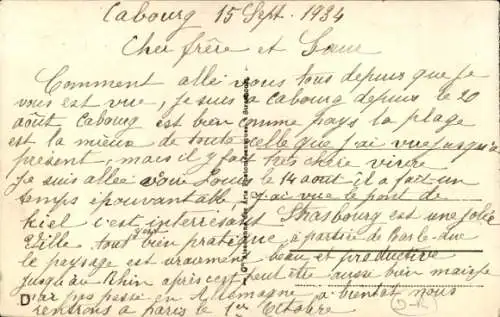 Cabourg 15 Sept. 1934
Cher frère et Sœur
Comment allé vous tous depuis que je
vous est vue, je suis a Cabourg depuis le 20
août Cabourg est bien comme pays la plage
est la mieux de toute celle que j'ai vue jusqu'a
présent, mais il y fait très chère vivre
je suis allée voir Louis le 14 aout il a fait un
temps épouvantable, j'ai vue le pont de
kiel c'est interrisant Strasbourg est une jolie
ville tout bien pratique, a partir de Bar le duc
le paysage est vraiment beau et productive
jusqu'au Rhin après c'est peut être aussi bien mais je
n'ai pas passé en Allemagne a bientôt nous
rentrons a paris le 1er Octobre
D